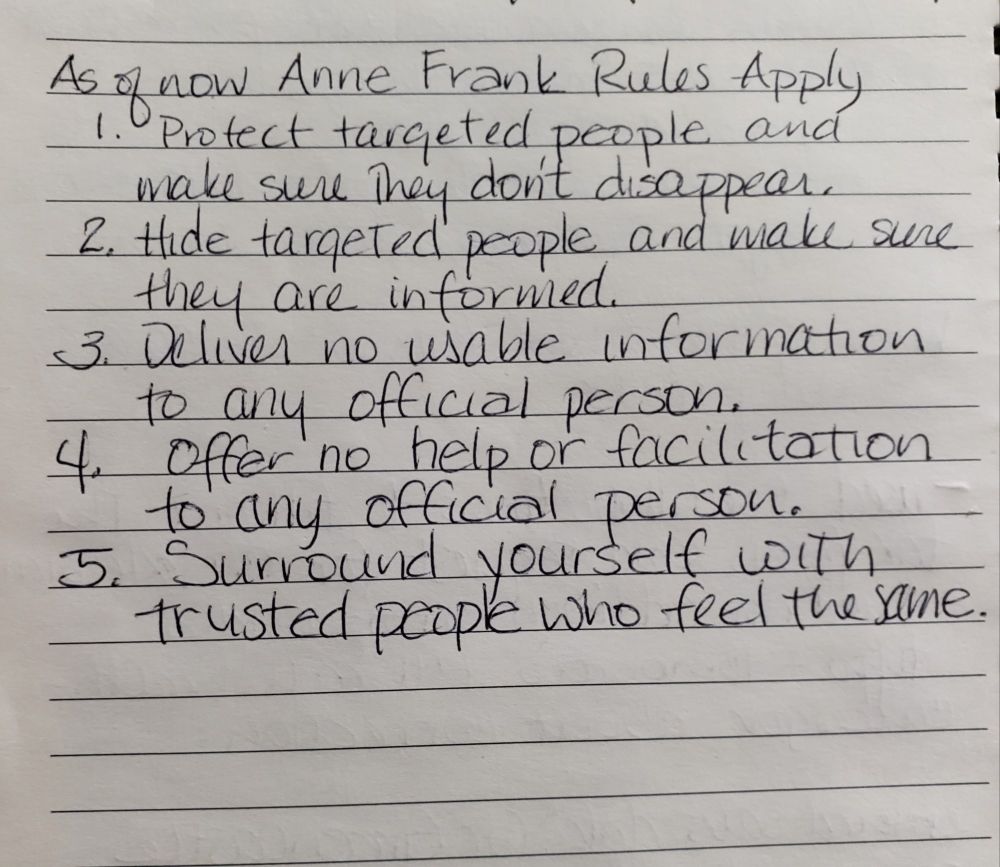 As of now Anne Frank Rules Apply
1. Protect targeted people and
make sure They don't disappear.
2. Hide targeted people and make sure
they are informed.
3. Deliver no usable information
to any official person.
4. Offer no help or facilitation
to any official person.
5. Surround yourself with
trusted people who feel the same.